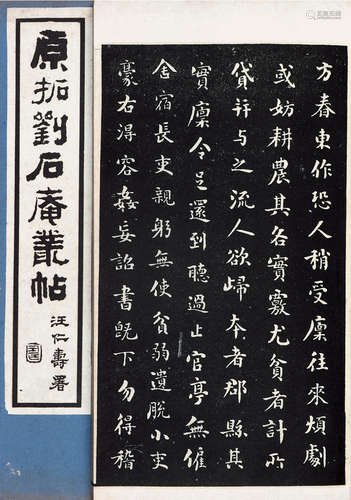 方春東作恐人稍受廩往來煩劇
或妨耕農其各實覈尤貧者計所
貸并與之流人欲歸本者郡縣其
實廩令足還到聽過止官亭無僱
舍宿長吏親躬無使貧弱遺脫小吏
豪右得容姦妄詔書既下勿得稽
原拓劉石庵叢帖
汪仁壽署